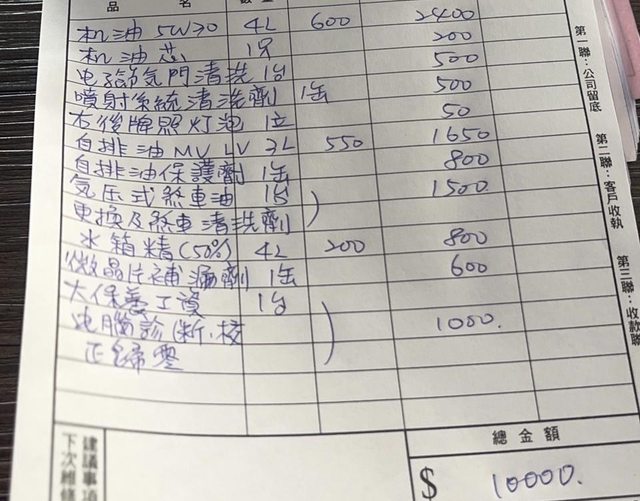 品 名 數量
机油 5W30 4L 600 2400
机油芯 1只 200
电子節気門清洗 1台 500
噴射系統清洗劑 1缶 500
右後牌照灯泡 1立 50
自排油 MV LV 3L 550 1650
自排油保護劑 1缶 800
気压式煞車油 1台 1500
更換及煞車清洗劑
水箱精(50%) 4L 200 800
微晶片補漏劑 1缶 600
大保養工資 1台
电腦診断.校 1000.
正歸零
總金額
$ 10000.
建議事項
下次維修
第一聯：公司留底
第二聯：客戶收執
第三聯：收款聯